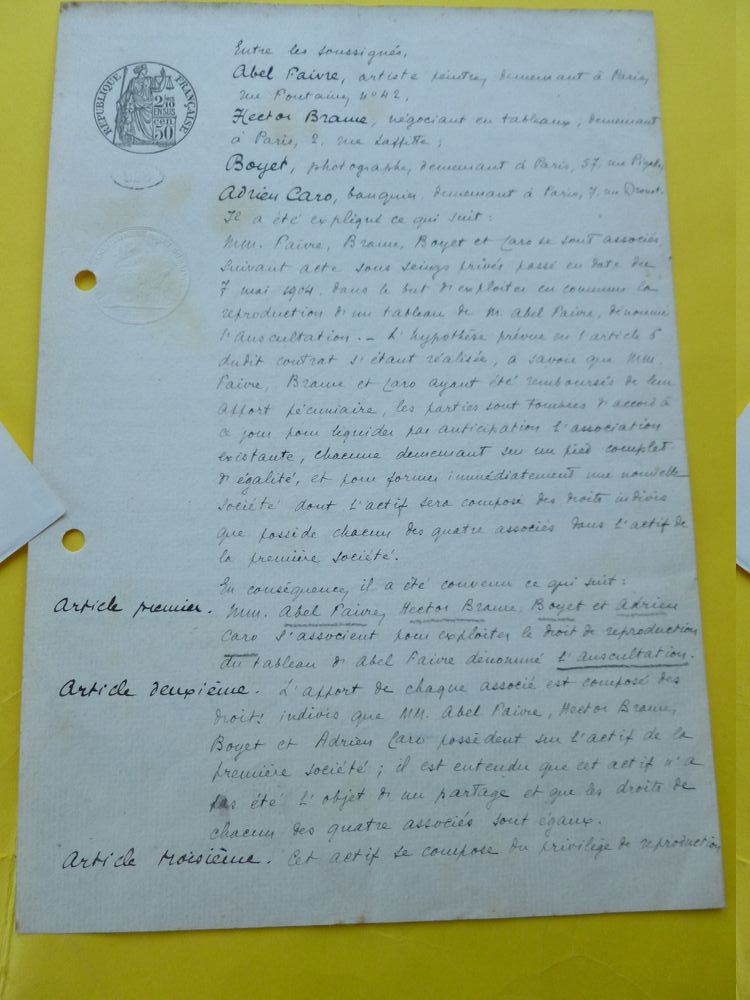 RÉPUBLIQUE FRANÇAISE
2/10
EN SUS
50 cen
Entre les soussignés,
Abel Faivre, artiste peintre, demeurant à Paris,
rue Fontaine, n° 42,
Hector Brame, négociant en tableaux, demeurant
à Paris, 2, rue Laffitte ;
Boyet, photographe, demeurant à Paris, 57, rue Pigalle,
Adrien Caro, banquier, demeurant à Paris, 7, rue Drouot.
Il a été expliqué ce qui suit :
MM. Faivre, Brame, Boyet et Caro se sont associés,
suivant acte sous seings privés passé en date du
7 mai 1904, dans le but d'exploiter en commun la
reproduction d'un tableau de M. Abel Faivre, dénommé
l'Auscultation. — L'hypothèse prévue en l'article 6
dudit contrat s'étant réalisée, à savoir que MM.
Faivre, Brame et Caro ayant été remboursés de leur
apport pécuniaire, les parties sont tombées d'accord à
ce jour pour liquider par anticipation l'association
existante, chacune demeurant sur un pied complet
d'égalité, et pour former immédiatement une nouvelle
société dont l'actif sera composé des droits indivis
que possède chacun des quatre associés dans l'actif de
la première société.
En conséquence, il a été convenu ce qui suit :
Article premier. MM. Abel Faivre, Hector Brame, Boyet et Adrien
Caro s'associent pour exploiter le droit de reproduction
du tableau d'Abel Faivre dénommé l'Auscultation.
Article deuxième. L'apport de chaque associé est composé des
droits indivis que MM. Abel Faivre, Hector Brame,
Boyet et Adrien Caro possèdent sur l'actif de la
première société ; il est entendu que cet actif n'a
pas été l'objet d'un partage et que les droits de
chacun des quatre associés sont égaux.
Article troisième. Cet actif se compose du privilège de reproduction